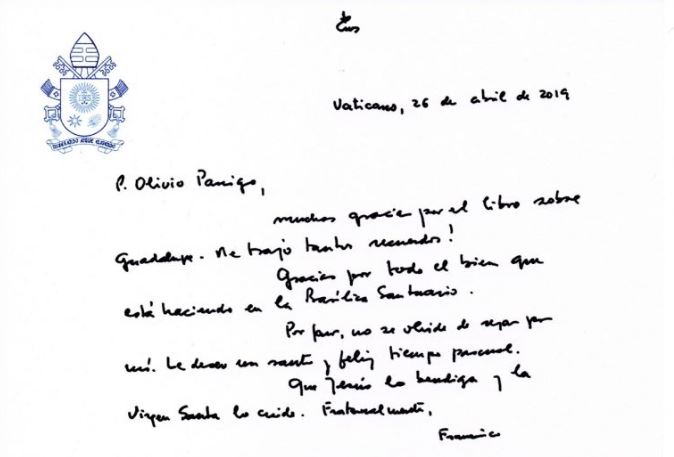 Vaticano, 26 de abril de 2019
MISERANDO ATQUE ELIGENDO
P. Olivio
muchas gracias por el libro sobre
Guadalupe. Me trajo tantos recuerdos!
Gracias por todo el bien que
está haciendo en la Basílica Santuario.
Por favor, no se olvide de rezar por
mí. Le deseo un santo y feliz tiempo pascual.
Que Jesús lo bendiga y la
Virgen Santa lo cuide. Fraternalmente,
Francisco